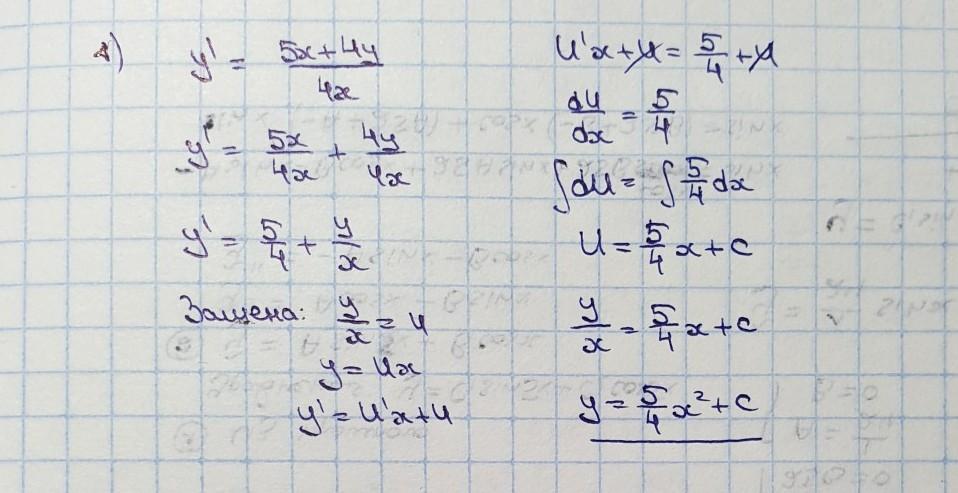 1) y' = (5x+4y)/(4x)
y' = 5x/4x + 4y/4x
y' = 5/4 + y/x
Замена: y/x = u
y = ux
y' = u'x+u
u'x+u = 5/4 +u
du/dx = 5/4
∫du = ∫5/4 dx
u = 5/4 x + c
y/x = 5/4 x + c
y = 5/4 x² + c